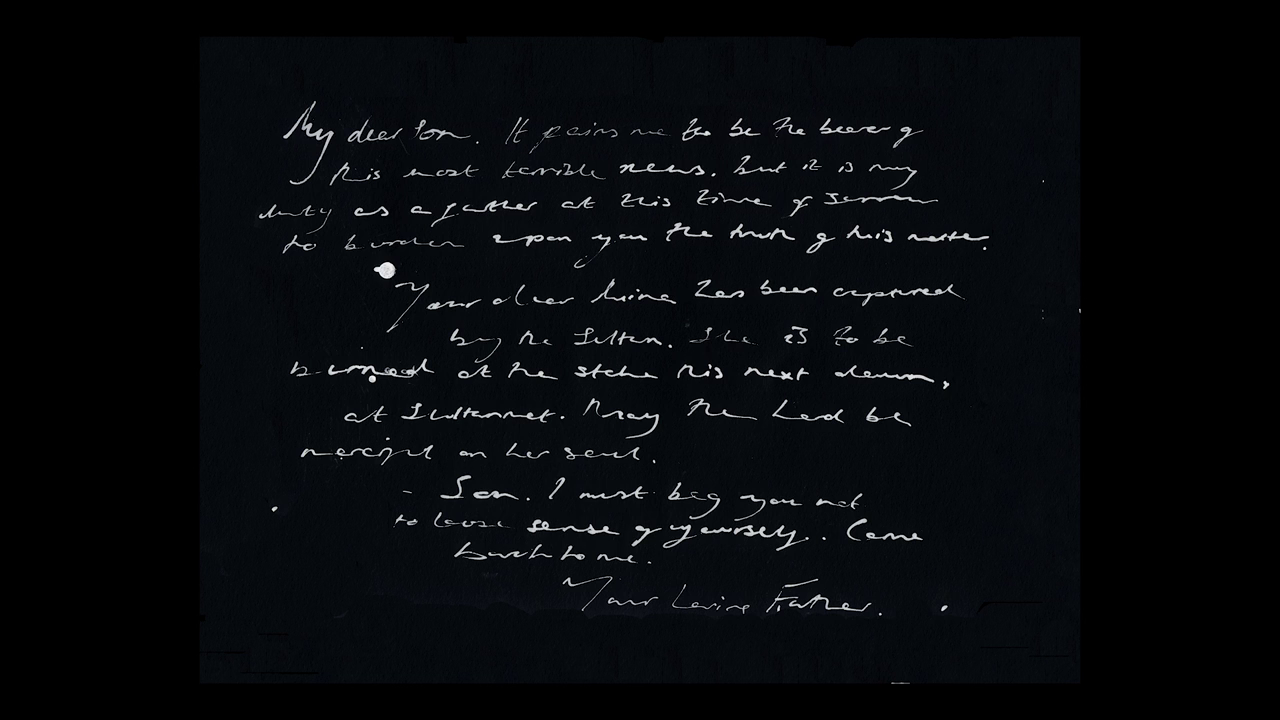 My dear Son. It pains me to be the bearer of
this most terrible news. but it is my
duty as a father at this time of sorrow
to burden upon you the truth of this matter.
Your dear has been captured
by the Sultan. She is to be
burned at the stake this next dawn,
at. Pray the Lord be
merciful on her soul.
- Son. I must beg you not
to loose sense of yourself.. Come
back to me.
Your Loving Father.